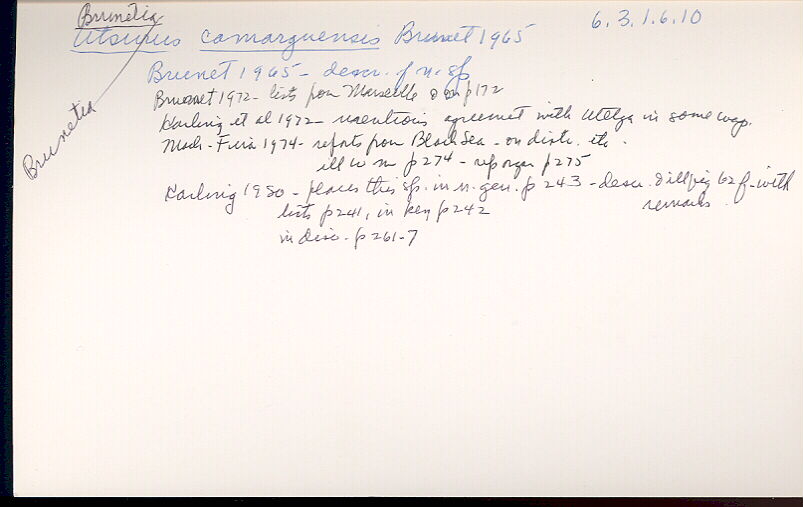 Brunetia
Utsurus camarguensis Brunet 1965
6.3.1.6.10
Brunetia
Brunet 1965 - descr. of n. sp
Brunet 1972 - lists from Marseille on p 172
Karling et al 1972 - mentions agreement with Utelga in some ways.
Mack-Fira 1974 - reports from Black Sea - on distr. etc.
ill w m p 274 - rep organ p 275
Karling 1980 - places this sp. in n. gen. p 243 - descr. & ill fig 62 f - with
lists p 241, in key p 242 remarks
in disc. p 261-7